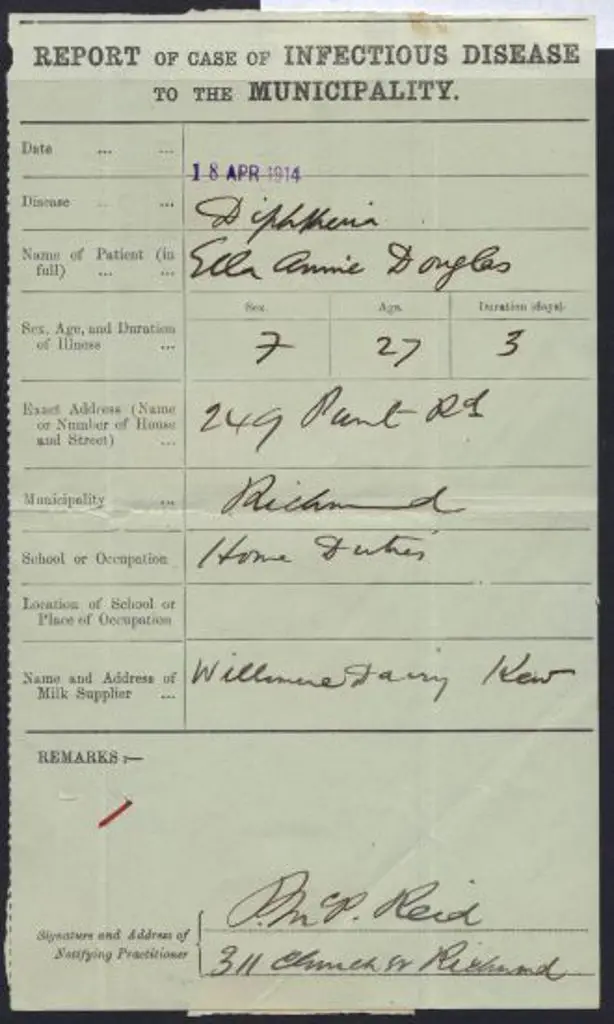 REPORT OF CASE OF INFECTIOUS DISEASE
TO THE MUNICIPALITY.
Date ... ...
18 APR 1914
Disease ... ...
Diphtheria
Name of Patient (in
full) ... ...
Ella Annie Douglas
Sex, Age, and Duration
of Illness ...
Sex. Age. Duration (days).
F 27 3
Exact Address (Name
or Number of House
and Street) ...
249 Punt Rd
Municipality ...
Richmond
School or Occupation
Home Duties
Location of School or
Place of Occupation
Name and Address of
Milk Supplier ...
Dairy Kew
REMARKS :—
Signature and Address of
Notifying Practitioner
Reid
311 Church St Richmond